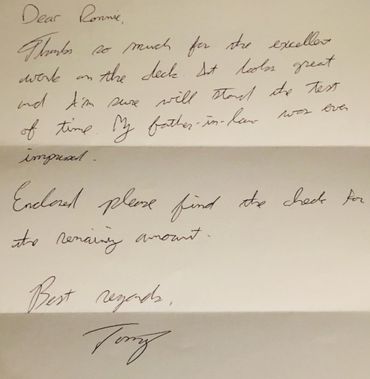 Dear Ronnie,
Thanks so much for the excellent
work on the deck. It looks great
and I'm sure will stand the test
of time. My father-in-law was even
impressed.
Enclosed please find the check for
the remaining amount.
Best regards,
Tony